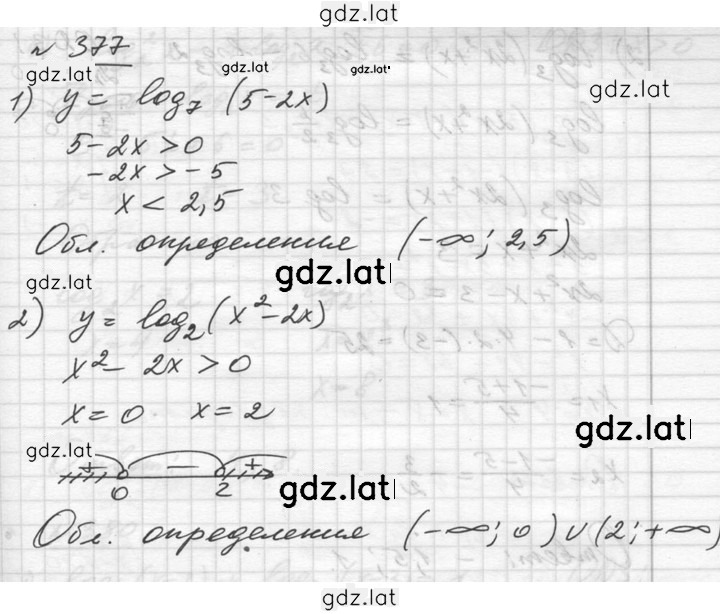 gdz.lat
№ 377
gdz.lat gdz.lat gdz.lat gdz.lat
1) y = log₇ (5-2x)
5-2x>0
-2x>-5
x < 2,5
Обл. определения (-∞; 2,5)
gdz.lat
gdz.lat
2) y = log₂(x²-2x)
x²- 2x > 0
x=0 x=2
gdz.lat
gdz.lat
+ - +
0 2
gdz.lat
Обл. определения (-∞; 0) ∪ (2; +∞)
gdz.lat